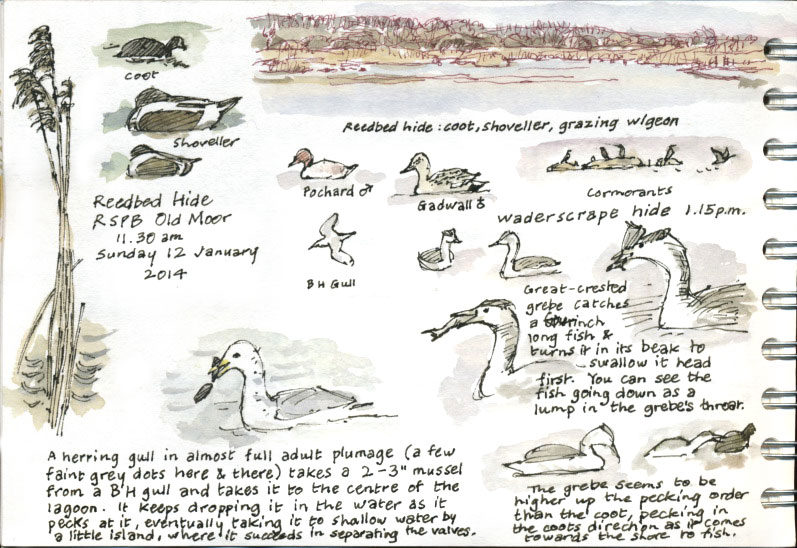 coot
Shoveller
Reedbed Hide
RSPB Old Moor
11.30 am
Sunday 12 January
2014
Reedbed hide: coot, shoveller, grazing wigeon
Pochard ♂
Gadwall ♂
Cormorants
waderscrape hide 1.15p.m.
BH Gull
Great-crested
grebe catches
a inch
long fish &
turns it in its beak to
swallow it head
first. You can see the
fish going down as a
lump in the grebe's throat.
A herring gull in almost full adult plumage (a few
faint grey dots here & there) takes a 2-3" mussel
from a BH gull and takes it to the centre of the
lagoon. It keeps dropping it in the water as it
pecks at it, eventually taking it to shallow water by
a little island, where it succeeds in separating the valves.
The grebe seems to be
higher up the pecking order
than the coot, pecking in
the coots direction as it comes
towards the shore to fish.